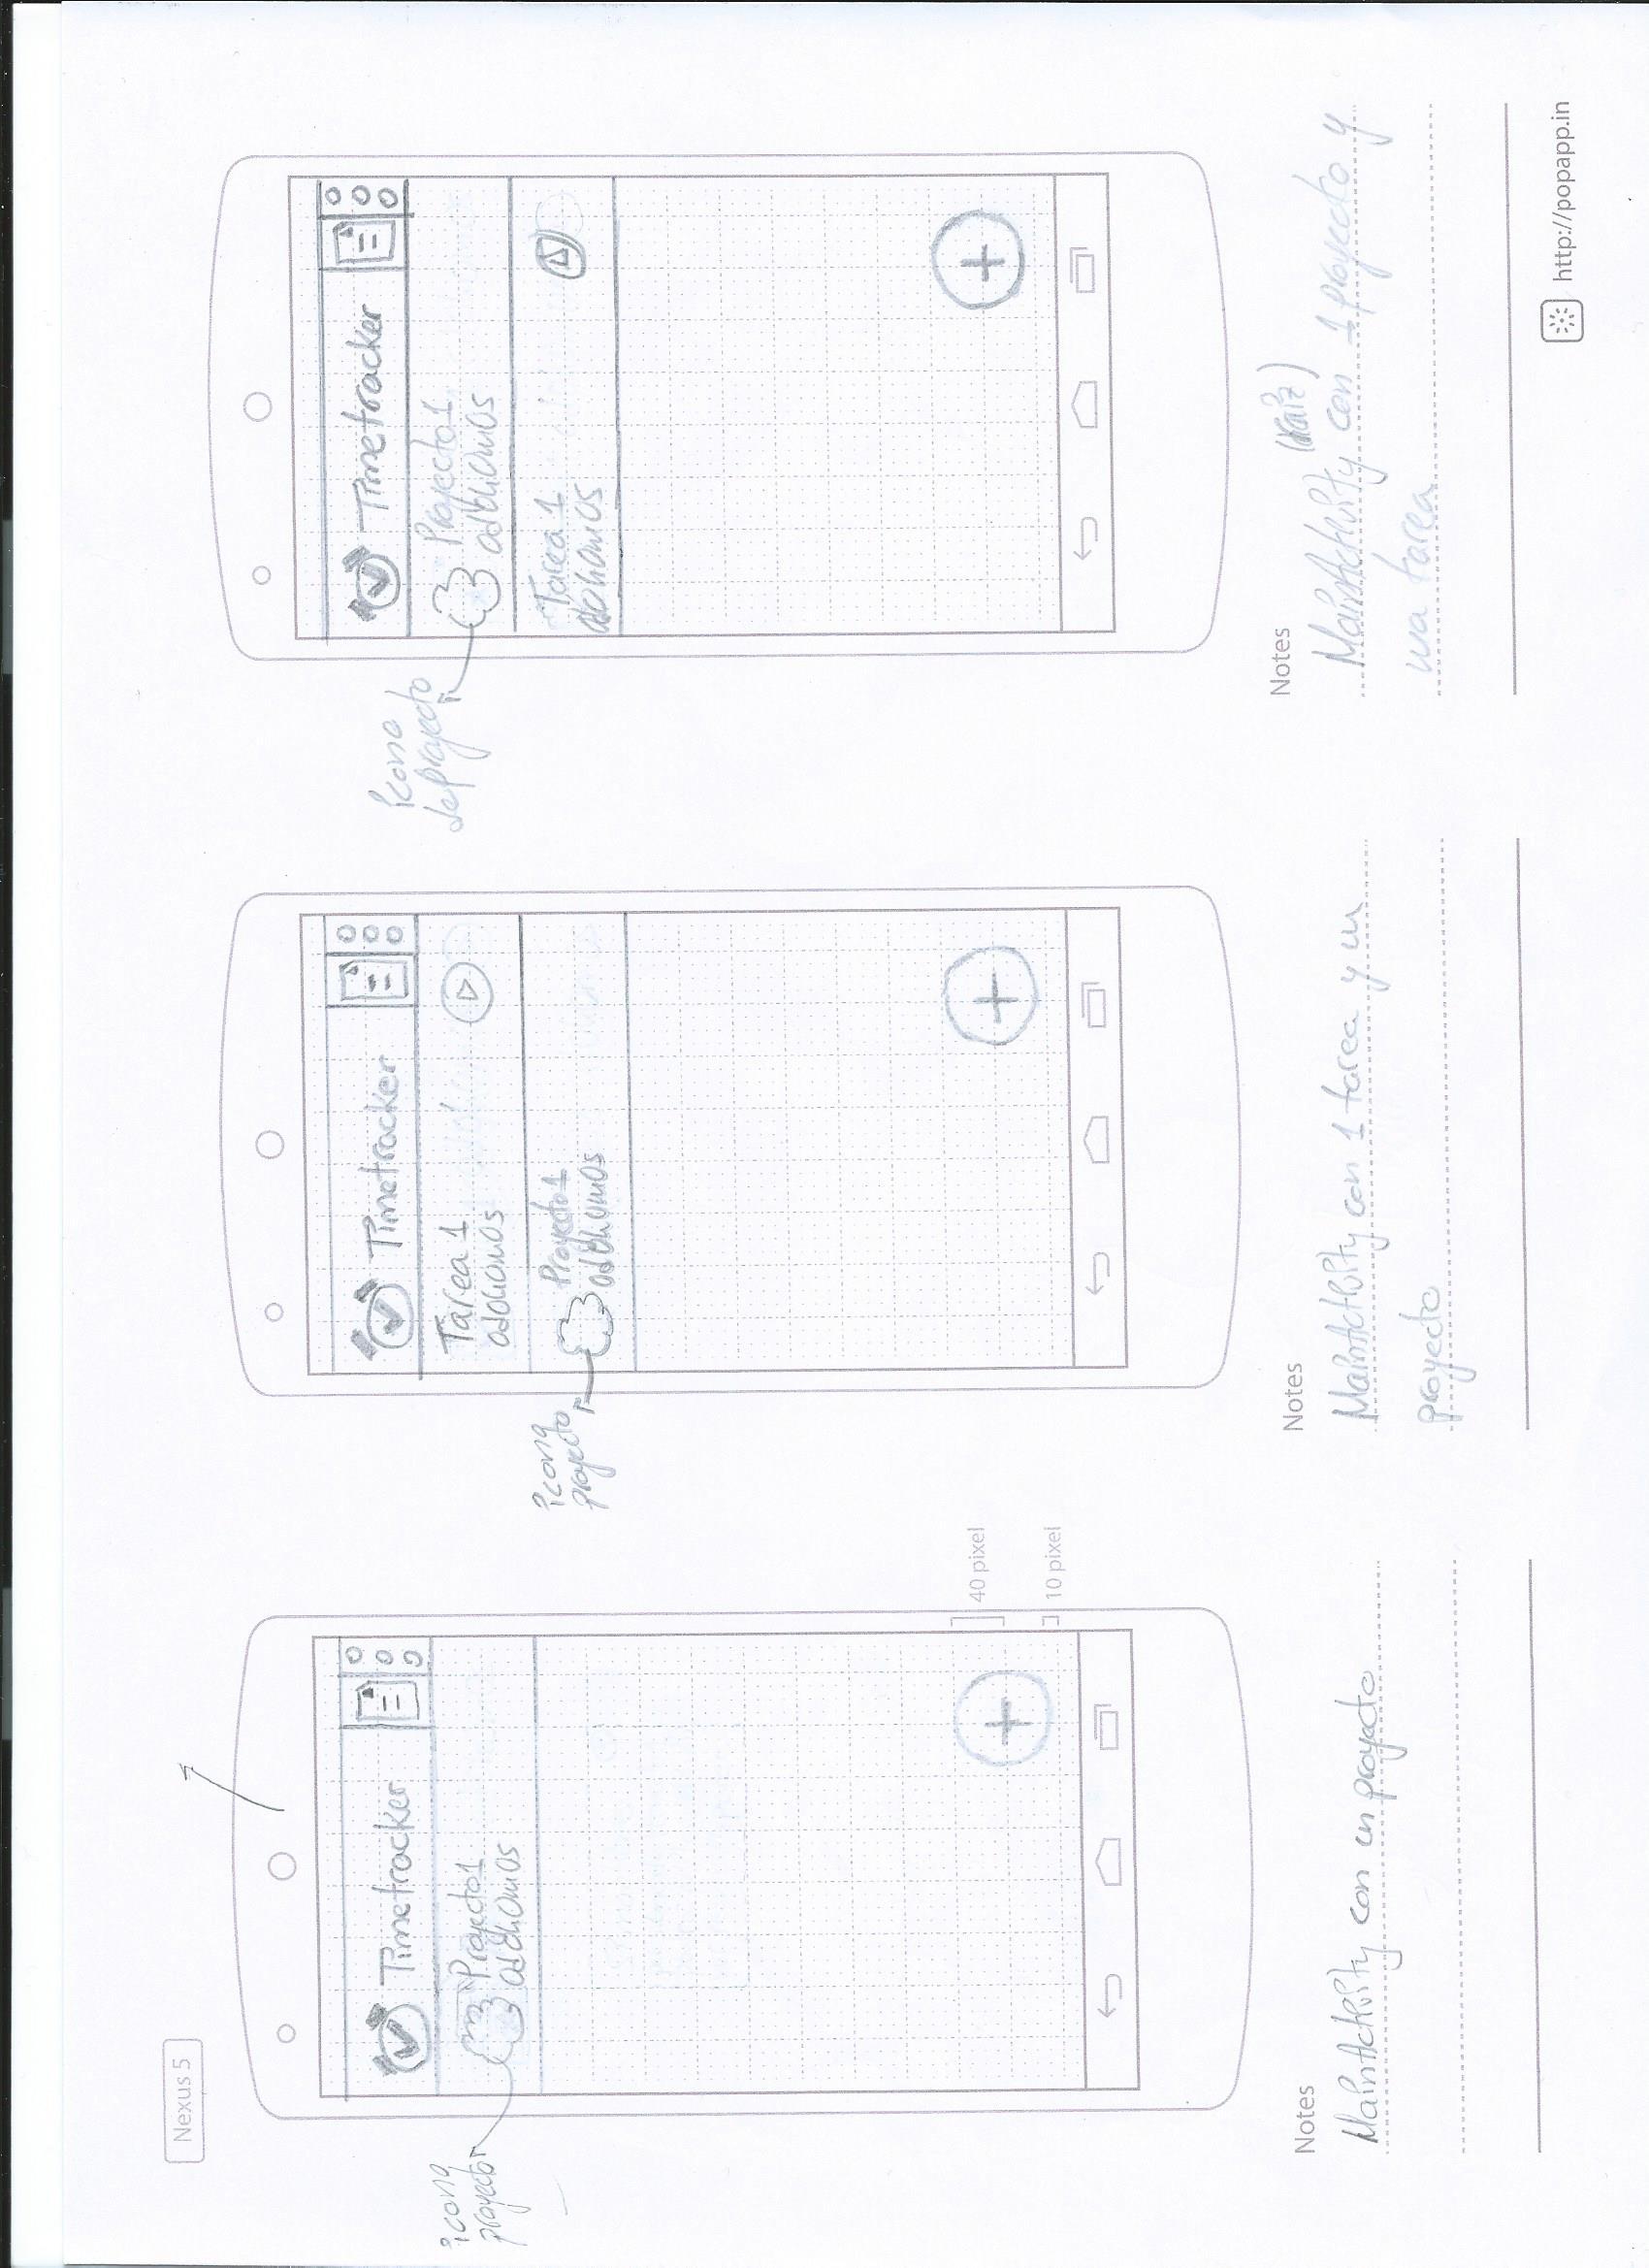 Nexus 5
Timetracker
icono
proyecto
Proyecto1
0d0h0m0s
40 pixel
10 pixel
Notes
MainActivity con un proyecto
Timetracker
Tarea 1
0d0h0m0s
icono
proyecto
Proyecto1
0d0h0m0s
Notes
MainActivity con 1 tarea y un
proyecto
Timetracker
icono
de proyecto
Proyecto1
0d0h0m0s
Tarea 1
0d0h0m0s
Notes
(raíz)
MainActivity con 1 proyecto y
una tarea
http://popapp.in